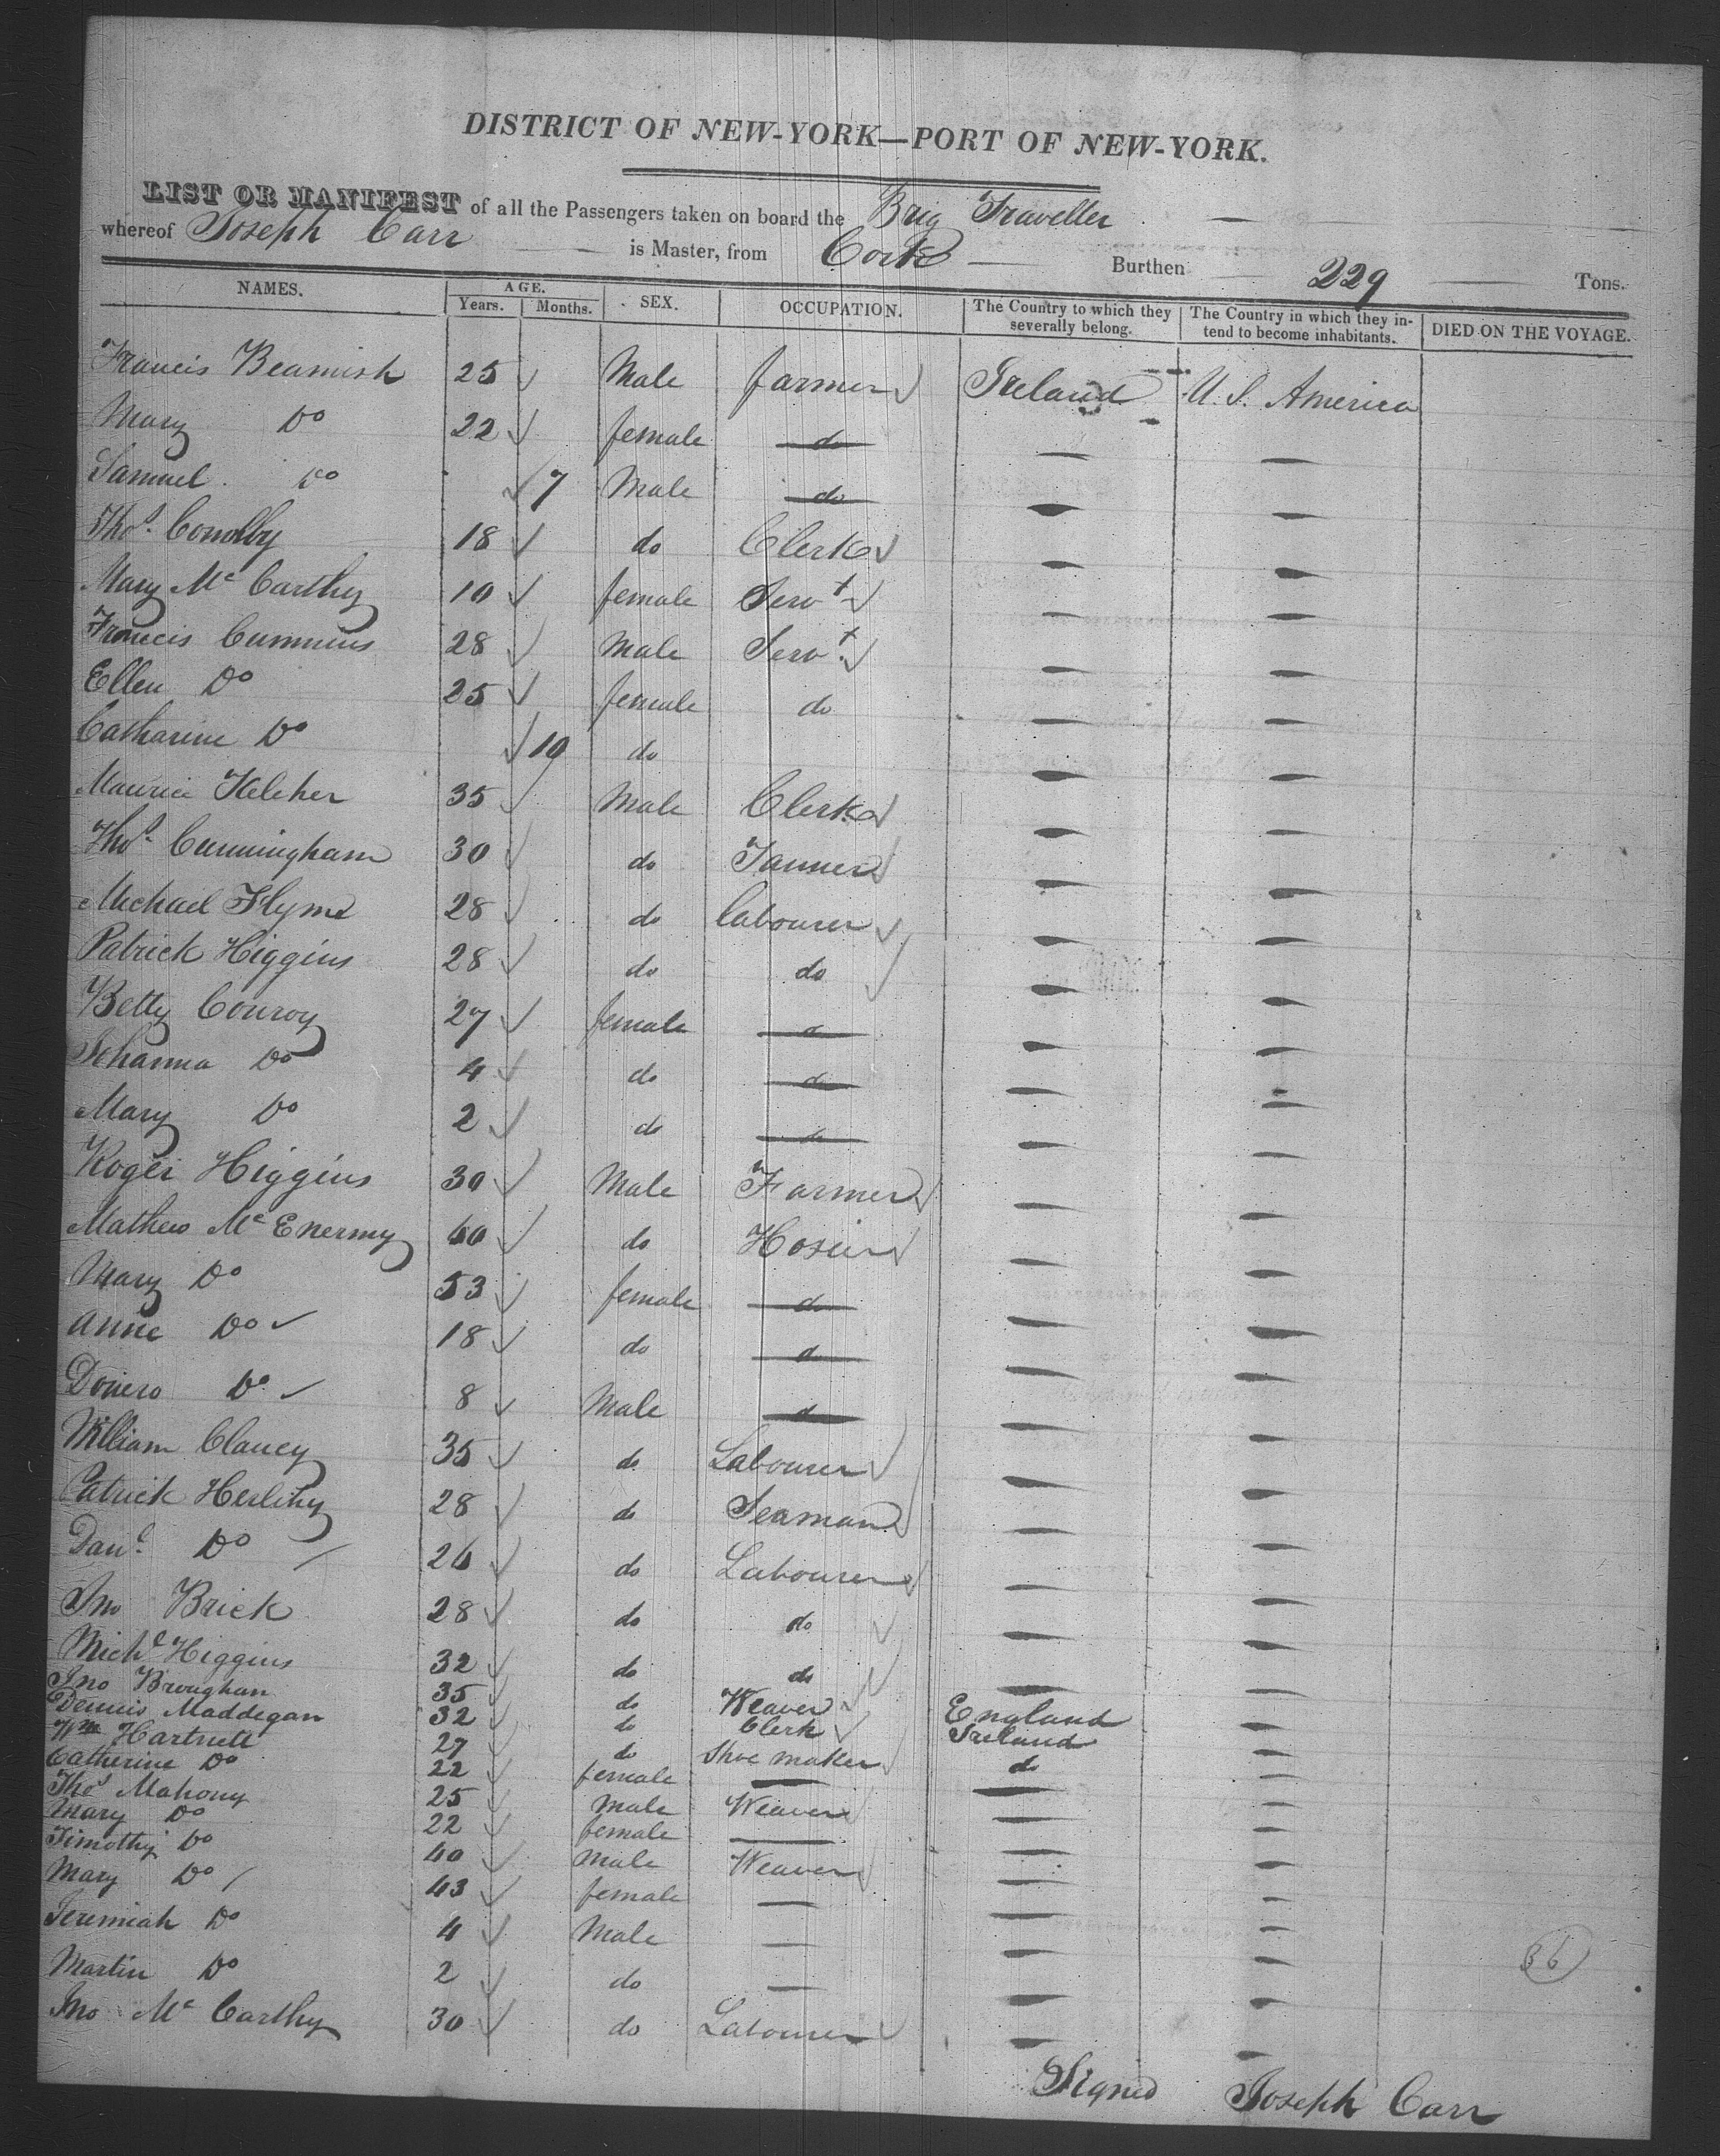 DISTRICT OF NEW-YORK—PORT OF NEW-YORK.
LIST OR MANIFEST of all the Passengers taken on board the Brig Traveller
whereof Joseph Carr is Master, from Cork Burthen 229 Tons.
NAMES. AGE. Years. Months. SEX. OCCUPATION. The Country to which they severally belong. The Country in which they intend to become inhabitants. DIED ON THE VOYAGE.
Francis Beamish 25 Male farmer Ireland U. S. America
Mary Do 22 female do
Samuel Do 7 Male do
Thos. Conolby 18 do Clerk
Mary Mc Carthy 10 female Servt
Francis Cummins 28 Male Servt.
Ellen Do 25 female do
Catharine Do 10 do
Maurice Keleher 35 Male Clerk
Thos. Cunningham 30 do Tanner
Michael Flynn 28 do labourer
Patrick Higgins 28 do do
Betty Conroy 27 female do
Johanna Do 4 do do
Mary Do 2 do do
Roger Higgins 30 Male Farmer
Mathew Mc Enermy 60 do Hosier
Mary Do 53 female do
Anne Do 18 do do
Do 8 Male do
William Clancy 35 do Labourer
Patrick Herlihy 28 do Seaman
Danl. Do 26 do Labourer
Jno Brick 28 do do
Michl Higgins 32 do do
Jno Broughan 35 do Weaver England
Dennis Maddegan 32 do Clerk Ireland
Wm Hartnett 27 do Shoe maker do
Catherine Do 22 female
Thos Mahony 25 Male Weaver
Mary Do 22 female
Timothy Do 40 Male Weaver
Mary Do 43 female
Jeremiah Do 4 Male
Martin Do 2 do
Jno Mc Carthy 30 do Labourer
36
Signed Joseph Carr